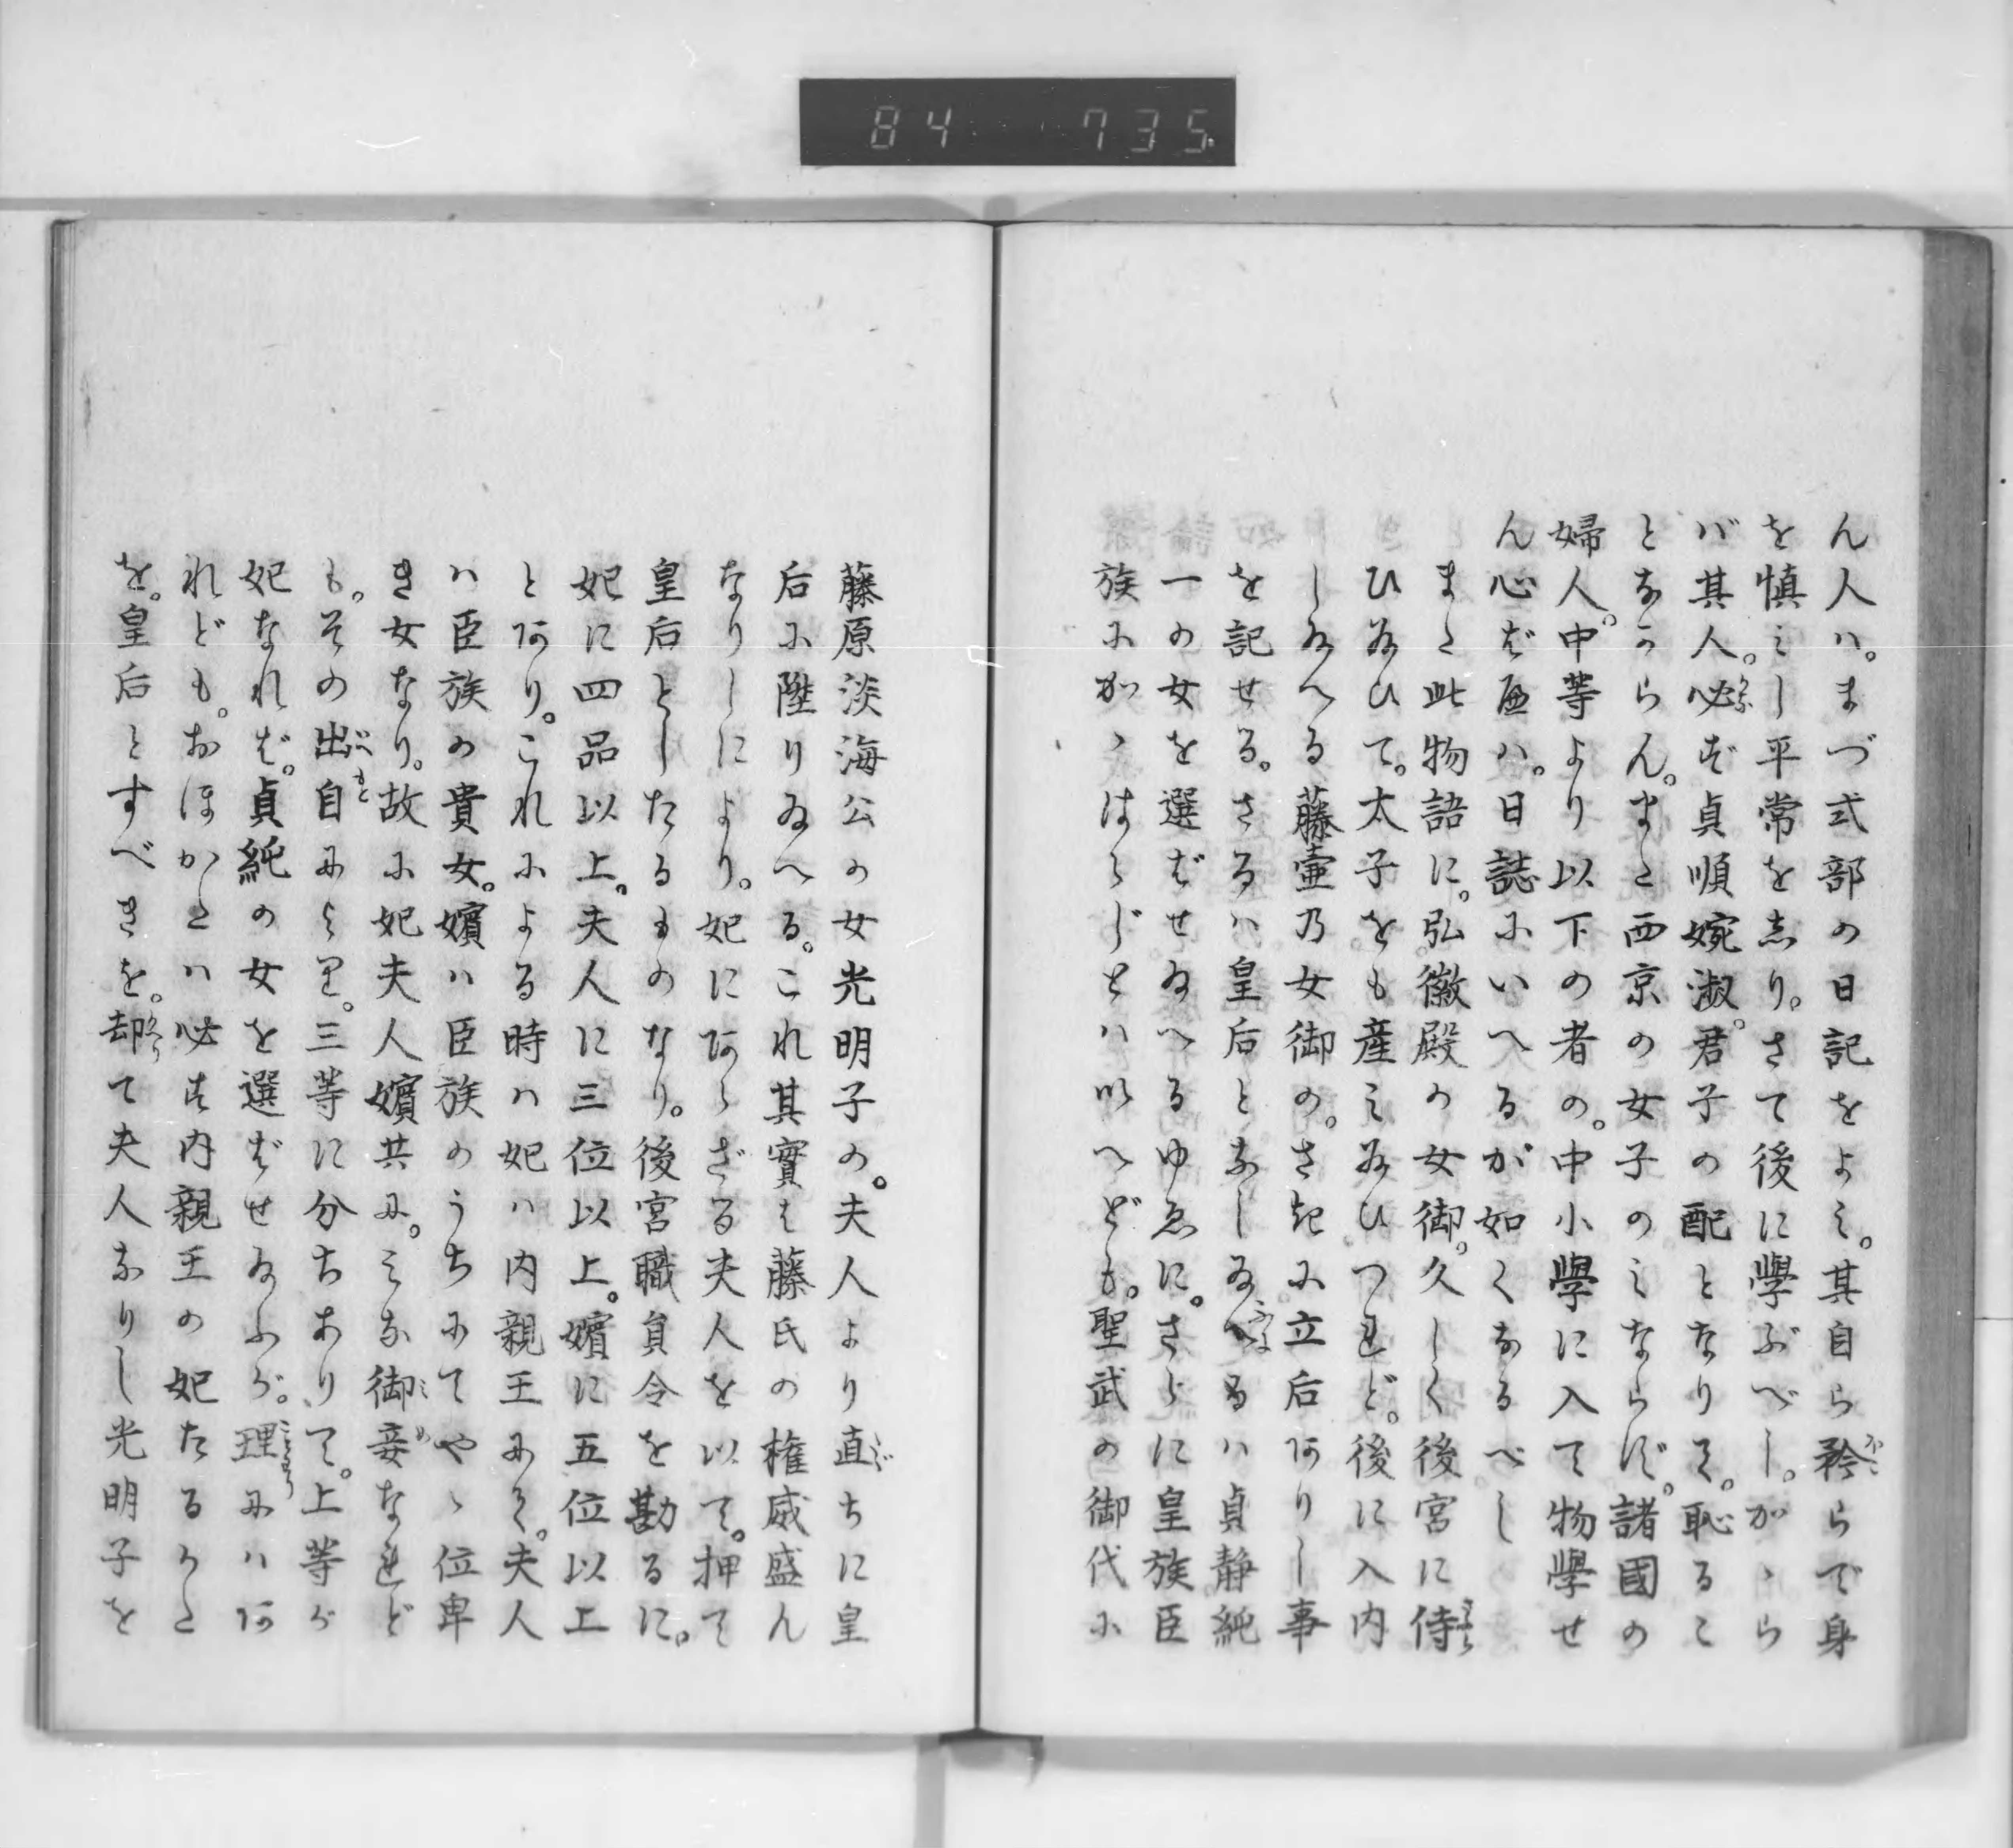 84 735
ん人ハ。まづ式部の日記をよミ。其自ら矜らで身
を慎ミし平常を志り。さて後に學ぶべし。かゝら
バ其人。必ず貞順婉淑。君子の配となりて。恥るこ
となからん。また西京の女子のミならず。諸國の
婦人。中等より以下の者の。中小學に入て物學せ
ん心ばへハ。日誌にいへるが如くなるべし
また此物語に。弘徽殿の女御。久しく後宮に侍
ひ給ひて。太子をも産ミ給ひつれど。後に入内
し給へる藤壷乃女御の。さきに立后ありし事
を記せる。さるハ皇后となし給へるハ貞靜純
一の女を選ばせ給へるゆゑに。さらに皇族臣
族にかゝはらじとハいへども。聖武の御代に
藤原淡海公の女光明子の。夫人より直ちに皇
后に陞り給へる。これ其實は藤氏の権威盛ん
なりしにより。妃にあらざる夫人を以て。押て
皇后としたるものなり。後宮職員令を勘るに。
妃に四品以上。夫人に三位以上。嬪に五位以上
とあり。これによる時ハ妃ハ内親王にて。夫人
ハ臣族の貴女。嬪ハ臣族のうちにてやゝ位卑
き女なり。故に妃夫人嬪共に。ミな御妾なれど
も。その出自によりて。三等に分ちありて。上等が
妃なれば。貞純の女を選ばせ給ふが。理にハあ
れども。おほかたハ必ず内親王の妃たるかた
を。皇后とすべきを。却て夫人なりし光明子を